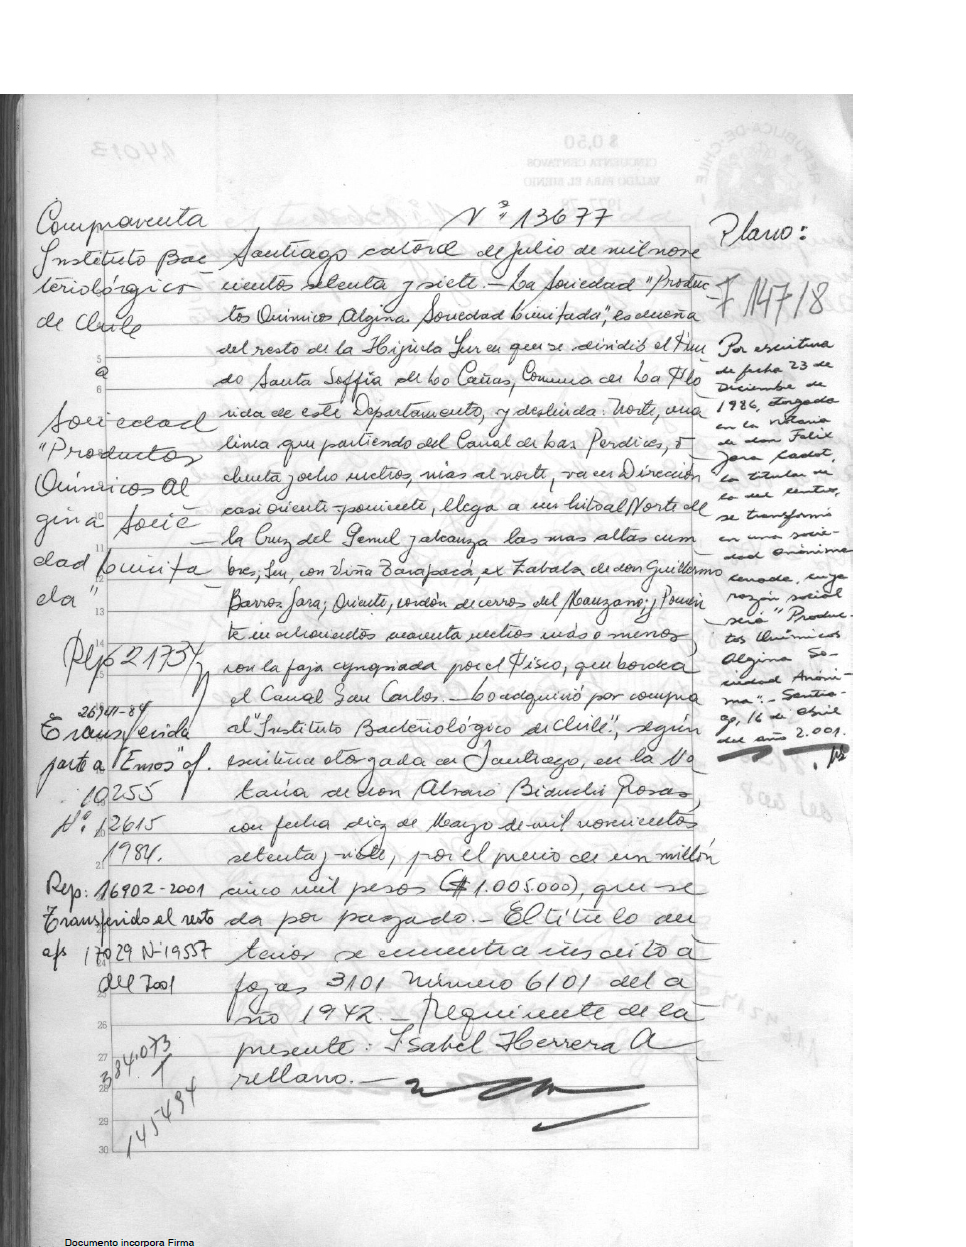 Compraventa
Instituto Bac
teriológico
de Chile
a
Sociedad
"Productos
Químicos Al
gina Socie
dad Limita
da"
Rep 21734
26941-84
Transferida
parte a "Emos" af.
10255
Nº 12615
1984.
Rep: 16902-2001
Transferido el resto
afs 17029 Nº 19557
del 2001
384.073
145494
Nº 13677
Santiago catorce de Julio de mil nove
cientos setenta y siete.- La Sociedad "Produc-
tos Químicos Algina Sociedad Limitada", es dueña
del resto de la Hijuela Sur en que se dividió el Fun
do Santa Soffía de Lo Cañas, Comuna de La Flo
rida de este Departamento, y deslinda: Norte, una
línea que partiendo del Canal de Las Perdices, o
chenta y ocho metros, más al norte, va en Dirección
casi oriente-poniente, llega a un hito al Norte de
la Cruz del y alcanza las mas altas cum
bres; Sur, con Viña Tarapacá, ex Zabala de don Guillermo
Barros Jara; Oriente, cordón de cerros del Manzano; y Ponien
te en ochocientos noventa metros más o menos
con la faja expropiada por el Fisco, que bordea
el Canal San Carlos.- Lo adquirió por compra
al "Instituto Bacteriológico de Chile", según
escritura otorgada en Santiago, en la No
taría de don Alvaro Bianchi Rosas,
con fecha diez de Marzo de mil novecientos
setenta y siete, por el precio de un millón
cinco mil pesos ($ 1.005.000), que se
da por pagado.- El título an
terior se encuentra inscrito a
fojas 3101 Número 6101 del a
ño 1942.- Requirente de la
presente: Isabel Herrera A
rellano.-
Plano:
F 147/8
Por escritura
de fecha 23 de
Diciembre de
1986, otorgada
en la notaria
de don Felix
Jara Cadot,
se transformó
en una socie-
dad anónima
cerrada, cuya
razón social
será "Produc-
tos Químicos
Algina So-
ciedad Anóni-
ma".- Santia-
go, 16 de Abril
del año 2.001.
5
6
10
11
12
13
14
15
20
21
25
26
27
28
29
30
Documento incorpora Firma